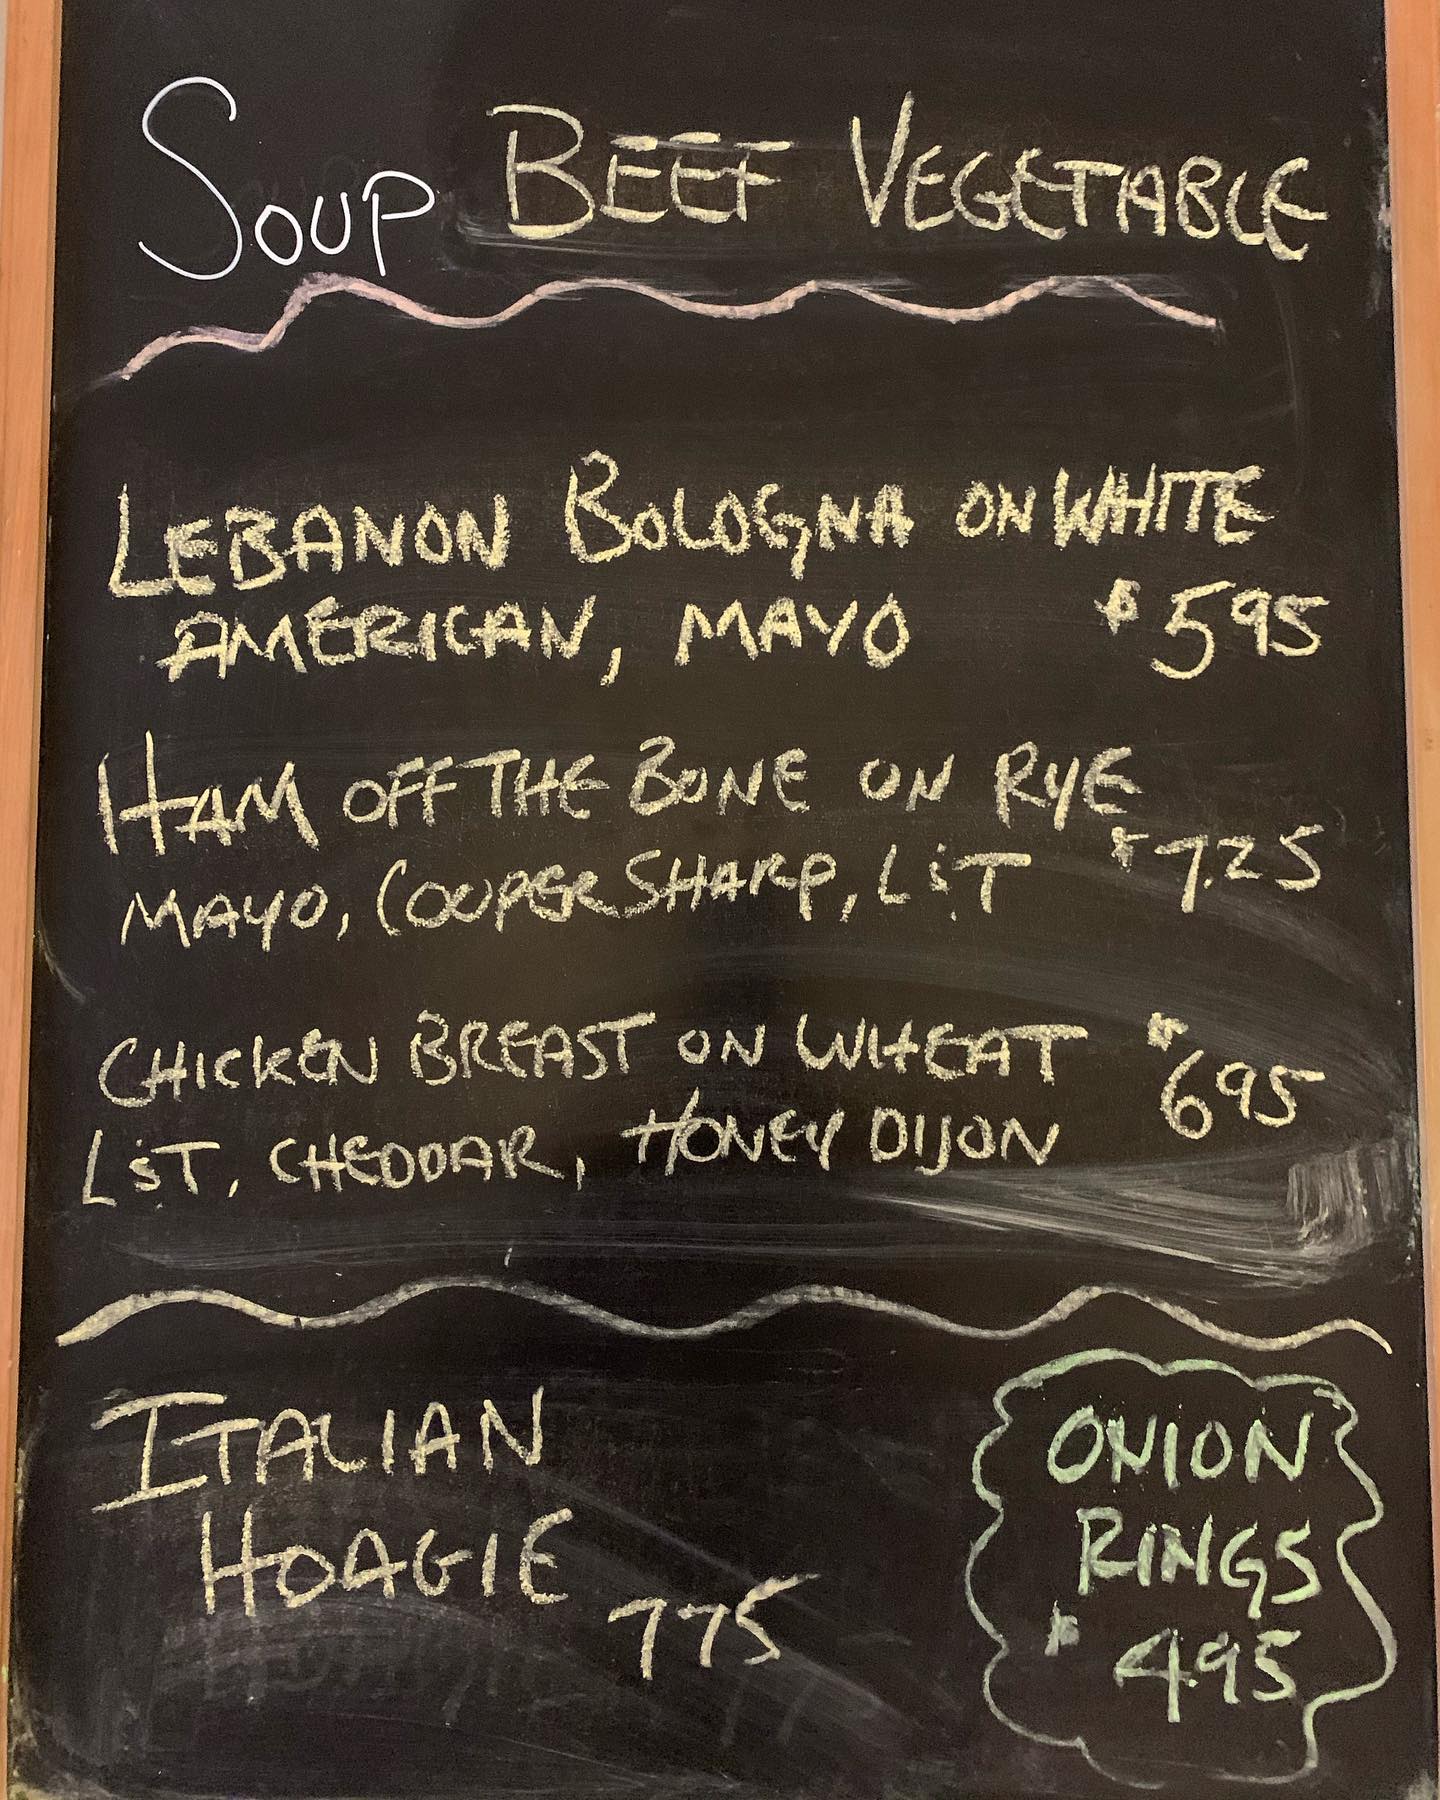 SOUP BEEF VEGETABLE
LEBANON BOLOGNA ON WHITE
AMERICAN, MAYO $595
HAM OFF THE BONE ON RYE
MAYO, COOPER SHARP, L&T $7.25
CHICKEN BREAST ON WHEAT $695
L&T, CHEDDAR, HONEY DIJON
ITALIAN
HOAGIE 775
ONION
RINGS
$4.95